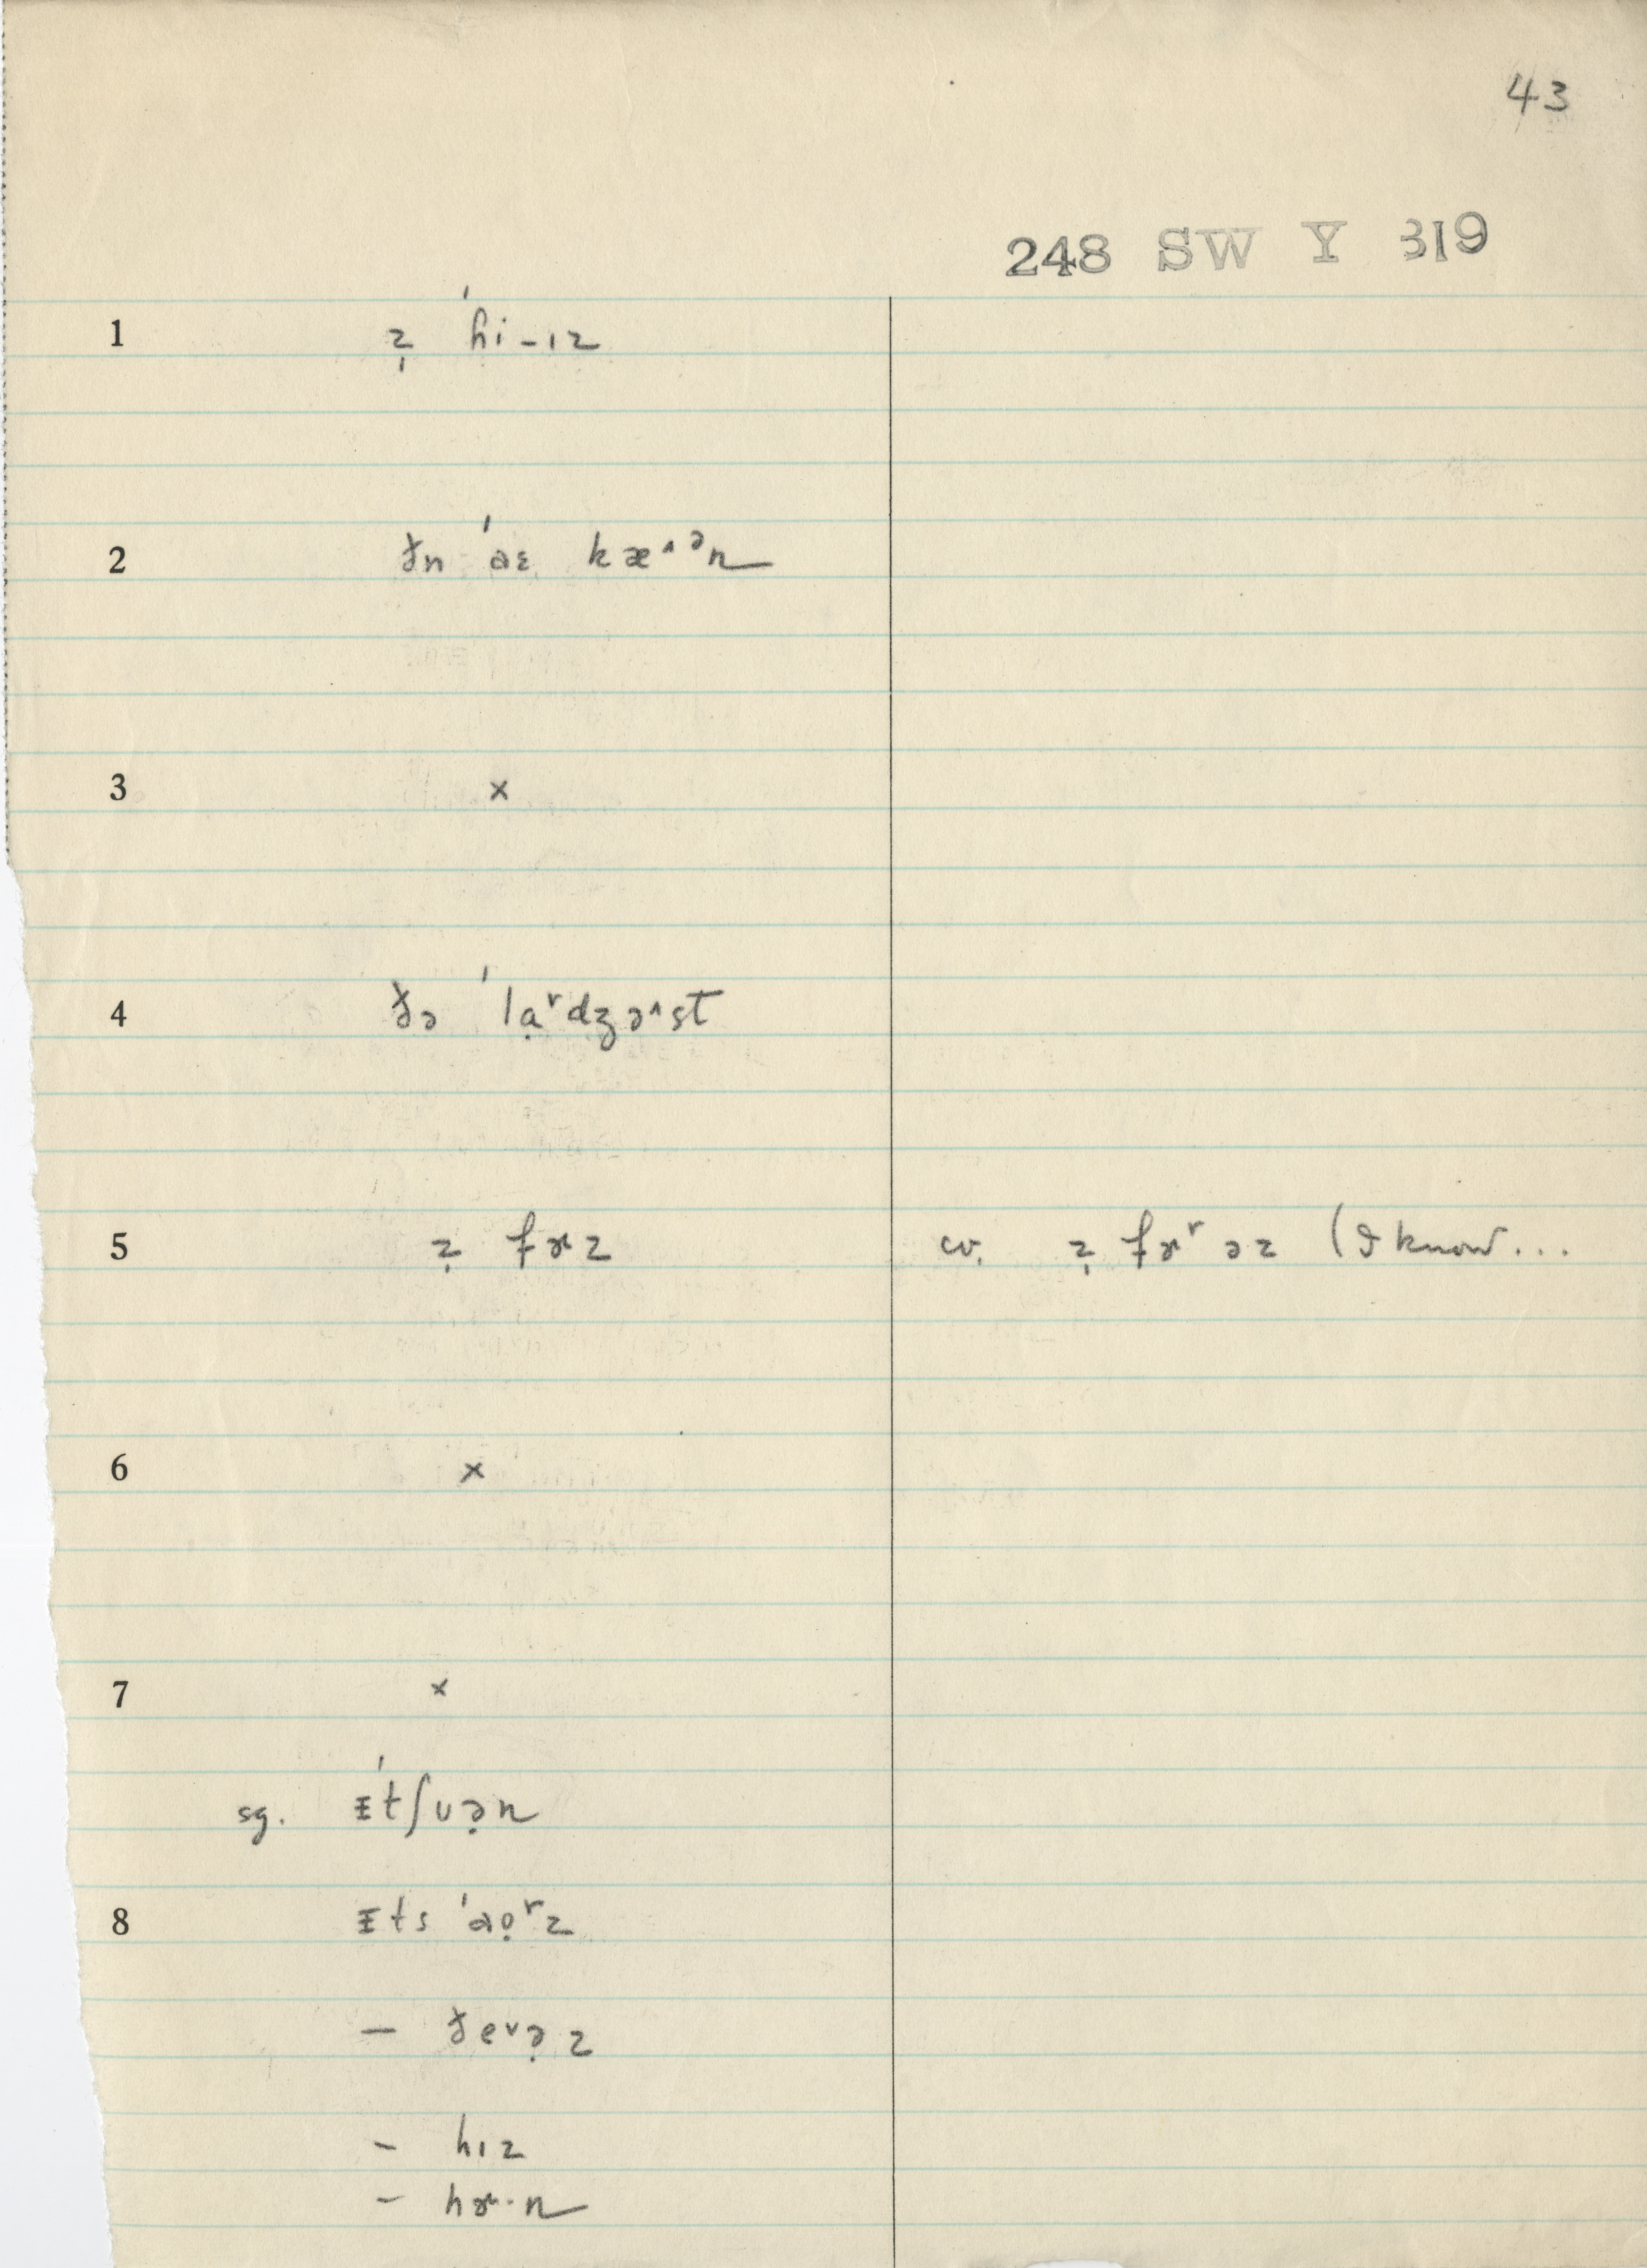 43
248 SW Y 319
1 z̩ ˈhi-ɪz
2 ðn ˈaɛ kæ^ᵊn
3 ×
4 ðə ˈlɑ̣ʳdʒə^st
5 z̩ fɚz cv. z̩ fɚʳ əz (I know...
6 ×
7 ×
sg. ᵻˈtʃuə̣n
8 ᵻts ˈɑọʳz
– ðeᵛə̣z
– hɪz
– hɚ·n